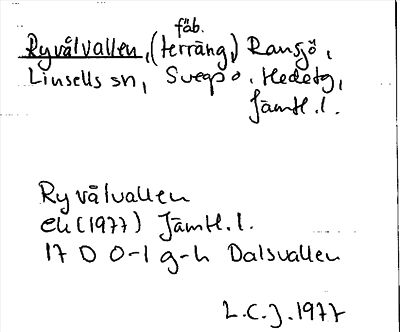 fäb.
Ryvålvallen, (terräng,) Ransjö,
Linsells sn, Svegs o. Hedetg,
Jämtl. l.
Ryvålvallen
ek (1977) Jämtl. l.
17 D 0-1 g-h Dalsvallen
L.C.J. 1977